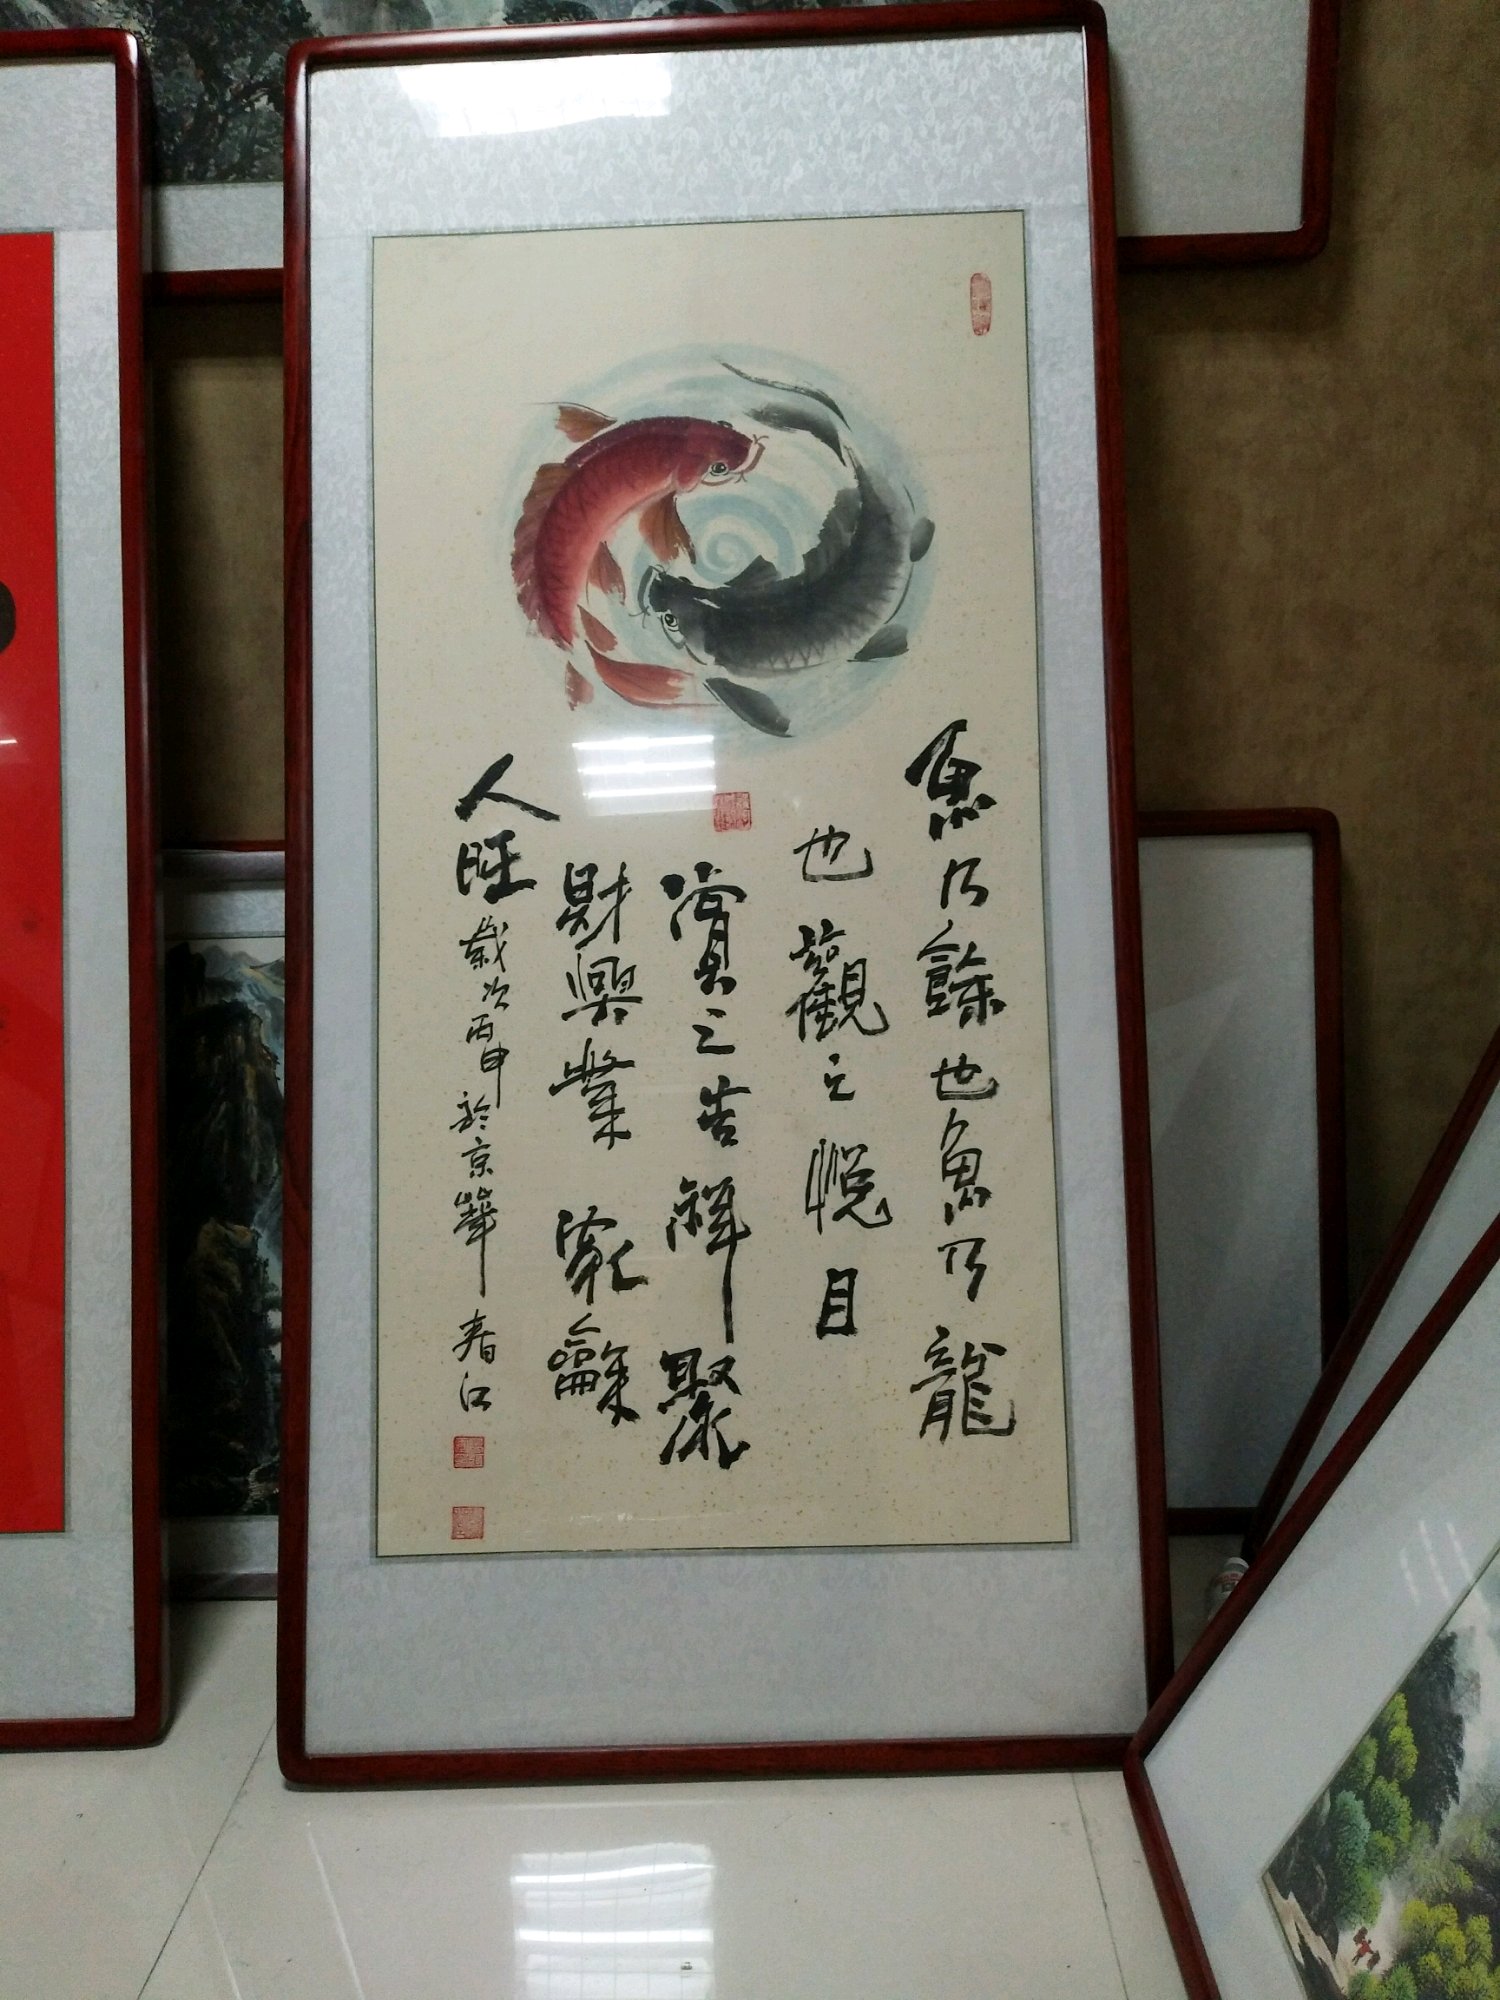 魚乃餘也魚乃龍
也觀之悦目
賞之吉祥聚
財興業家龢
人旺歲次丙申於京華春江